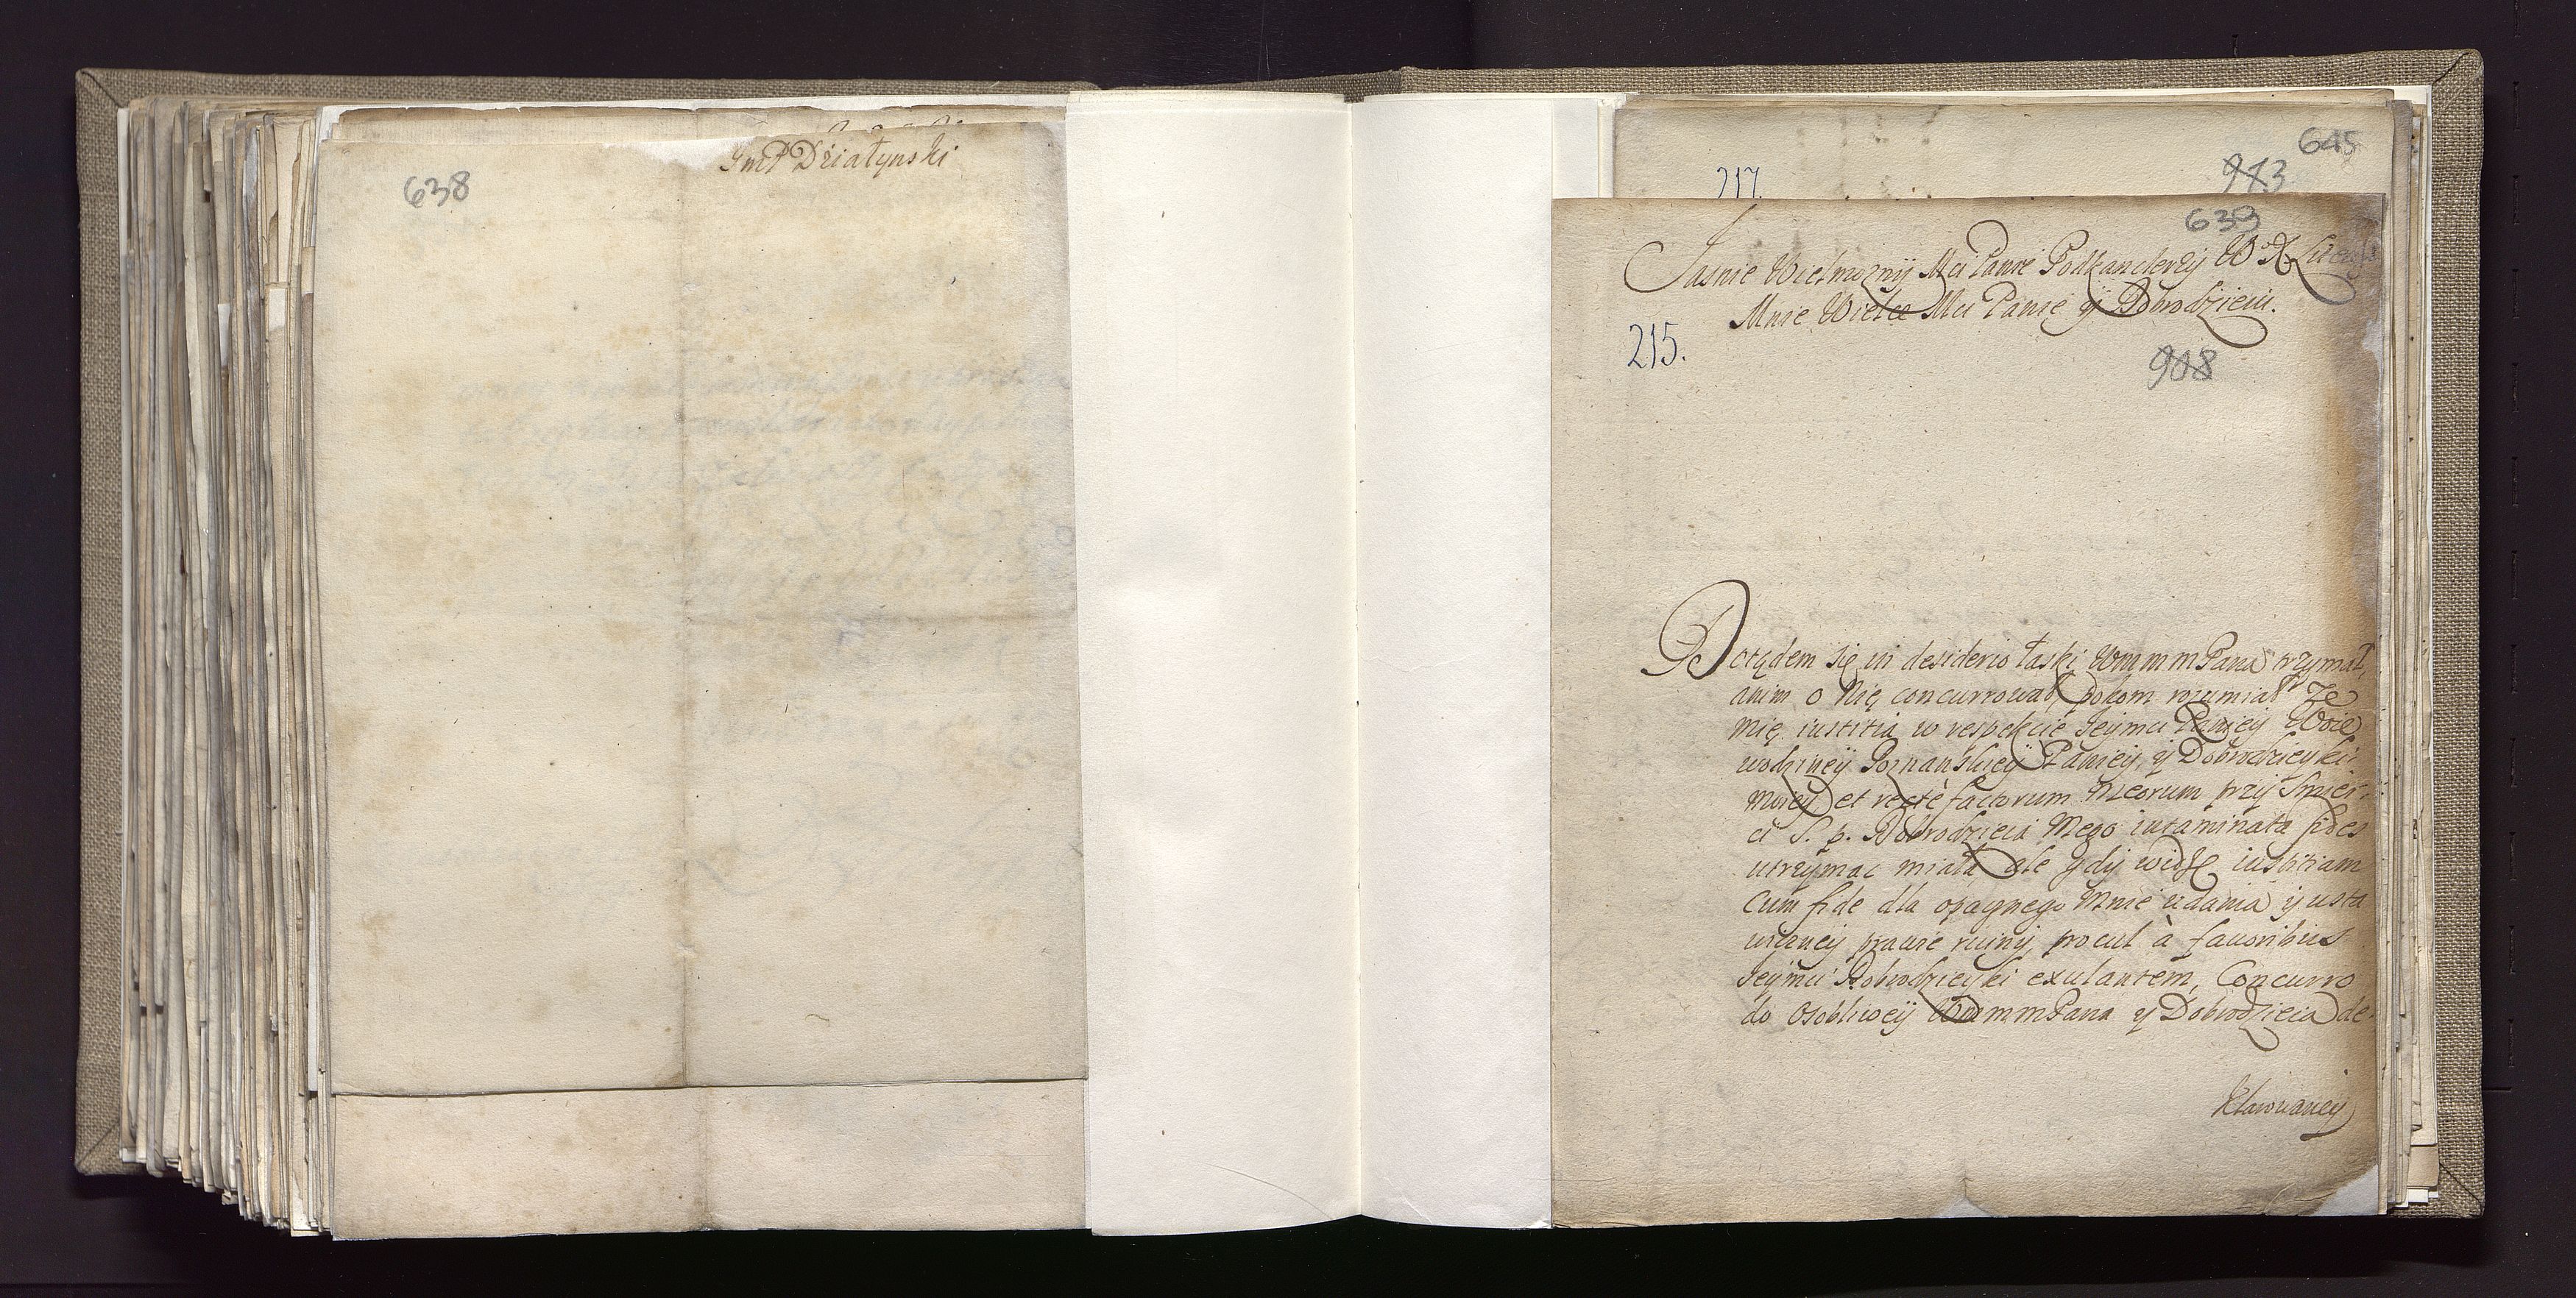 638
JmP Działynski
645
943
217.
639
Jasnie Wielmoznÿ Mci Panie Podkanclerzÿ W X Litt
Mnie Wielce Mci Panie ÿ Dobrodzieiu.
215.
908
Dotędem się in desiderio łaski WmmmPana trzymał,
anim o Nię concurrował, pokom rozumiał Ze
mię iustitia w respekcie Jeÿmci Paniey Woie
wodzineÿ Poznanskieÿ Panieÿ, ÿ Dobrodzieÿki
Moieÿ et recte factorum Meorum przÿ Smier-
ci S. p. Dobrodzieia Mego intaminata fides
utrzÿmac miała, ale gdÿ widzę iustitiam
Cum fide dla opacznego Mnie udania ÿ usta
wiczneÿ prawie ruinÿ, procul à fauoribus
Jeÿmci Dobrodzieÿki exulantem, Concurro
do osobliweÿ WmmmPana ÿ Dobrodzieia de-
klarowaneÿ